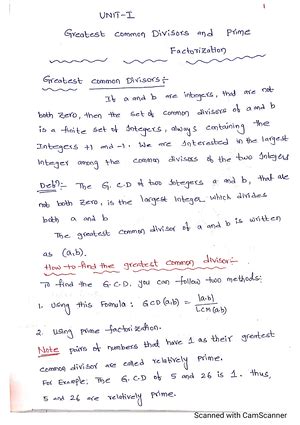 1
UNIT-I
Greatest common Divisors and Prime
Factorization
Greatest common Divisors:-
If a and b are integers, that are not
both zero, then the set of common divisors of a and b
is a finite set of Integers, always containing the
Integers +1 and -1. We are Interested in the largest
Integer among the common divisors of the two Integers
Defn:- The G.C.D of two Integers a and b, that are
not both zero, is the largest Integer which divides
both a and b
The greatest common divisor of a and b is written
as (a,b).
How to find the greatest common divisor:-
To find the G.C.D, you can follow two methods:
1. Using this Formula: GCD(a,b) = |a·b| / LCM(a,b)
2. Using prime factorization.
Note pairs of numbers that have 1 as their greatest
common divisor are called relatively prime.
For Example: The G.C.D of 5 and 26 is 1. Thus,
5 and 26 are relatively prime.
Scanned with CamScanner